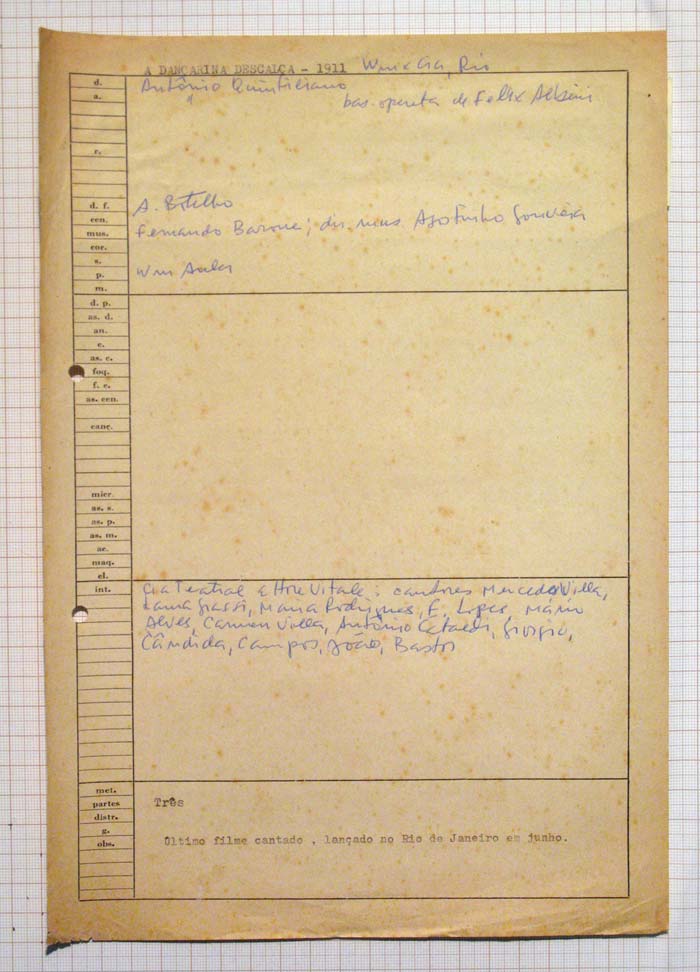 A DANÇARINA DESCALÇA - 1911 Wm & Cia, Rio
d. Antônio Quintiliano
a. " bas. opereta de Felix Albini
r.
d. f. A. Botelho
cen.
mus. Fernando Barone; dir. mus. Agostinho Gouveia
cor.
s.
p. Wm Auler
m.
d. p.
as. d.
an.
e.
as. e.
foq.
f. c.
as. cen.
canç.
micr.
as. s.
as. p.
as. m.
ac.
maq.
el.
int. Cia Teatral Ettore Vitale: cantores Mercedes Villa,
Maria Rodrigues, F. Lopes, Mario
Alves, Carmen Villa, Antônio Cataldi, Giorgio,
Cândida, Campos, João, Bastos
met.
partes Três
distr.
g.
obs. Último filme cantado , lançado no Rio de Janeiro em junho.